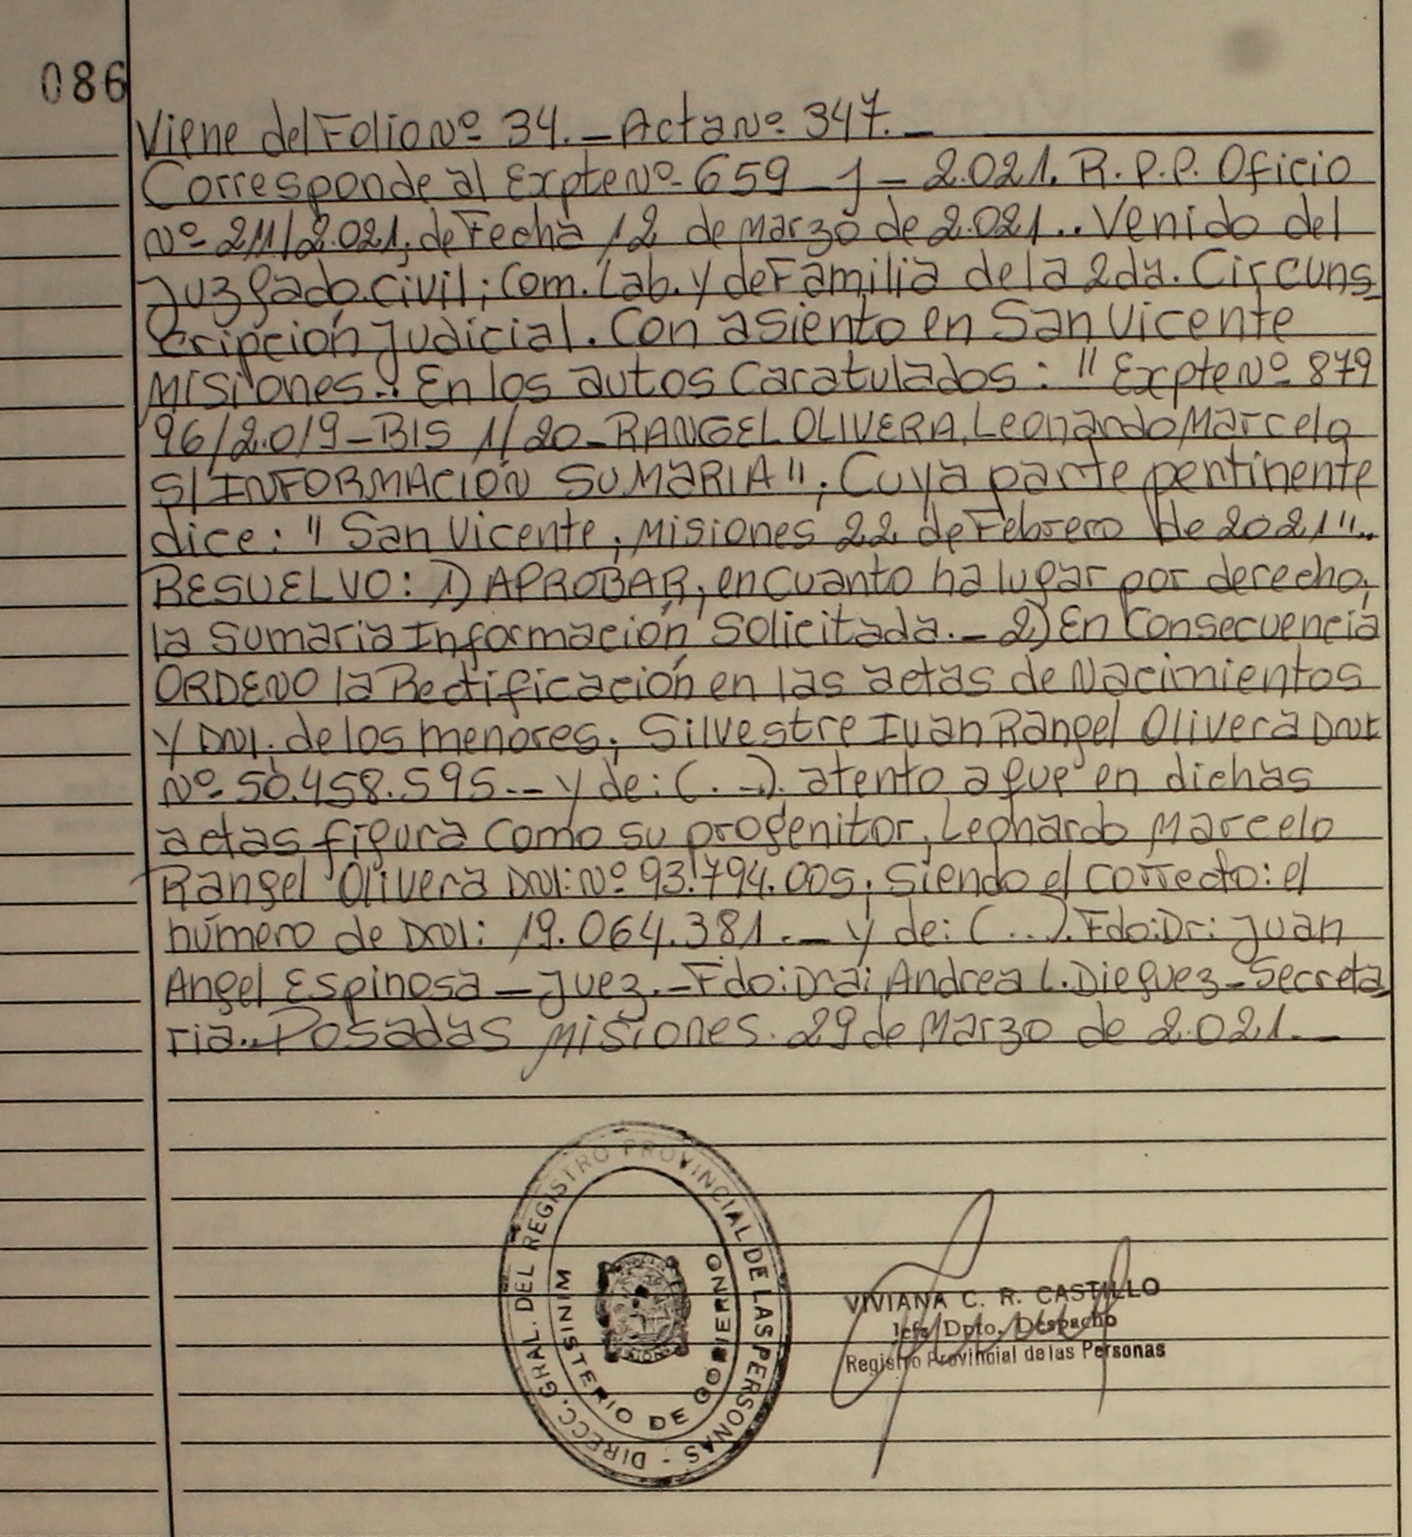 086
Viene del Folio Nº 34. _ Acta Nº 347. _
Corresponde al Expte Nº 659 _ J _ 2.021. R.P.P. Oficio
Nº 211/2.021, de Fecha 12 de Marzo de 2.021.. Venido del
Juzgado Civil; Com. Lab. y de Familia de la 2da. Circuns_
cripción Judicial. Con asiento en San Vicente
Misiones.. En los autos Caratulados: "Expte Nº 879
96/2.019 _ BIS 1/20 _ RANGEL OLIVERA, Leonardo Marcelo
S/INFORMACIÓN SUMARIA"; Cuya parte pertinente
dice: "San Vicente, Misiones 22 de Febrero de 2021"..
RESUELVO: 1) APROBAR, en cuanto ha lugar por derecho,
la Sumaria Información Solicitada. _ 2) En Consecuencia
ORDENO la Rectificación en las actas de Nacimientos
y DNI. de los menores; Silvestre Iván Rangel Olivera DNI
Nº 50.458.595. _ y de: (...). atento a que en dichas
actas figura como su progenitor, Leonardo Marcelo
Rangel Olivera DNI: Nº 93.794.005; siendo el correcto: el
número de DNI: 19.064.381. _ y de: (...). Fdo: Dr: Juan
Angel Espinosa _ Juez. _ Fdo: Dra; Andrea L. Dieguez _ Secreta
ria.. Posadas Misiones. 29 de Marzo de 2.021. _
DIRECC. GRAL. DEL REGISTRO PROVINCIAL DE LAS PERSONAS -
MINISTERIO DE GOBIERNO
VIVIANA C. R. CASTILLO
Jefe Dpto. Despacho
Registro Provincial de las Personas